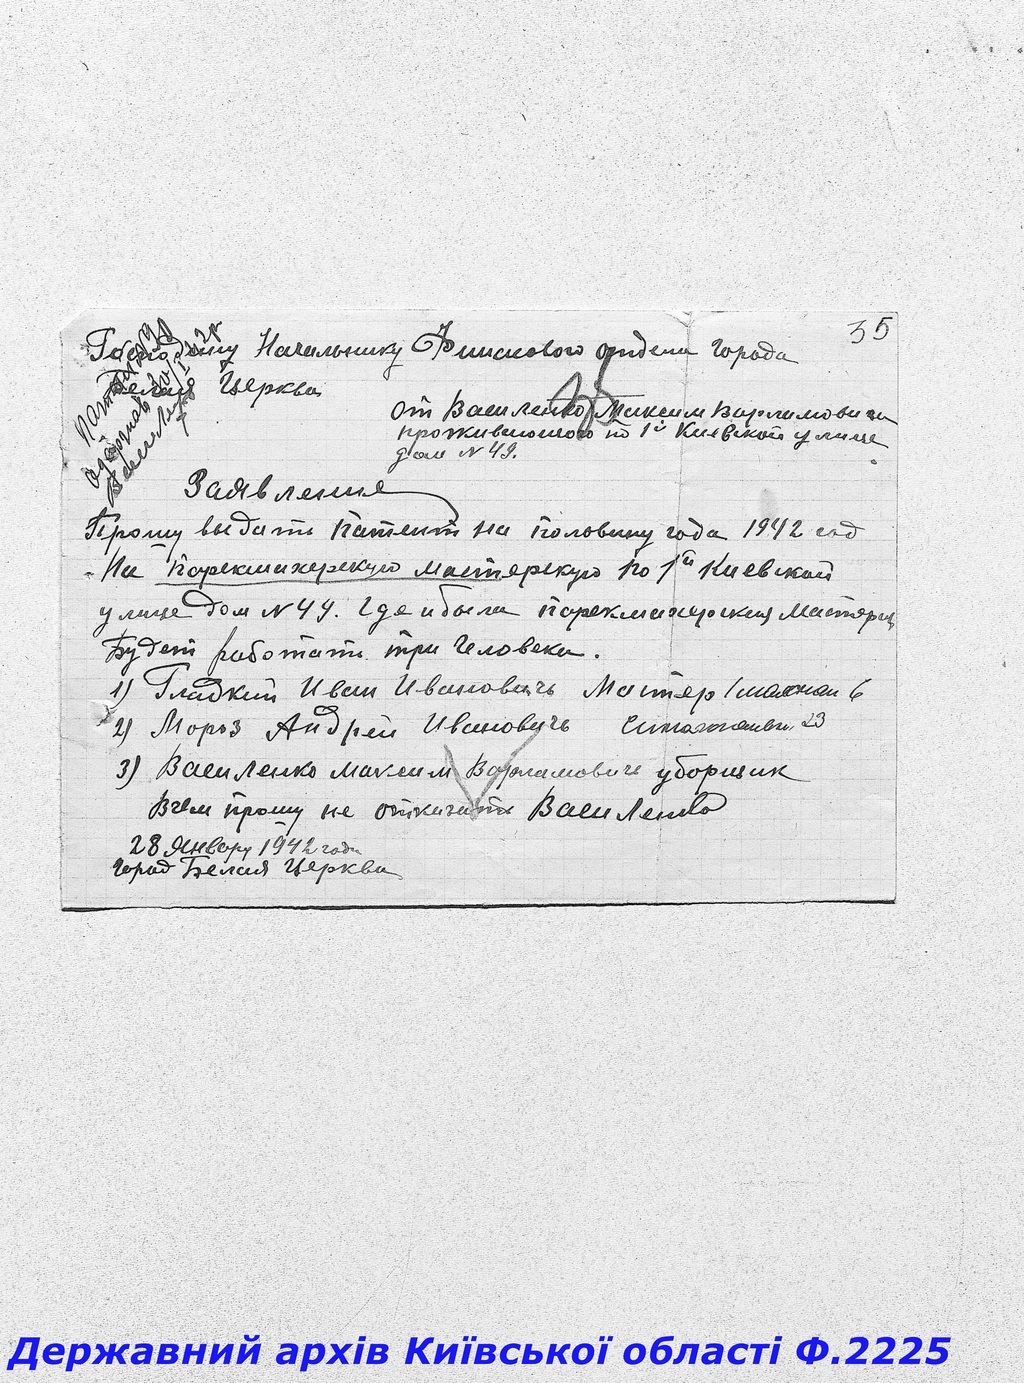 35
Господину Начальнику Финансового отдела города
Белая Церква
от Василенко Максим Варламовича
проживающого по 1й Киевской улице
дом № 49.
Заявление
Прошу выдать патент на половину года 1942 год
На парекмахерскую мастерскую по 1й Киевской
улице дом № 49. где и была парекмахерская мастерщ
Будет работать три человека.
1) Гладкий Иван Ивановичь Мастер
2) Мороз Андрей Ивановичь 23
3) Василенко Максим Варламовичь уборщик
Вчем прошу не отказать Василенко
28 Январу 1942 года
город Белая Церква
Патент
одержав
Василенко
Державний архів Київської області Ф.2225